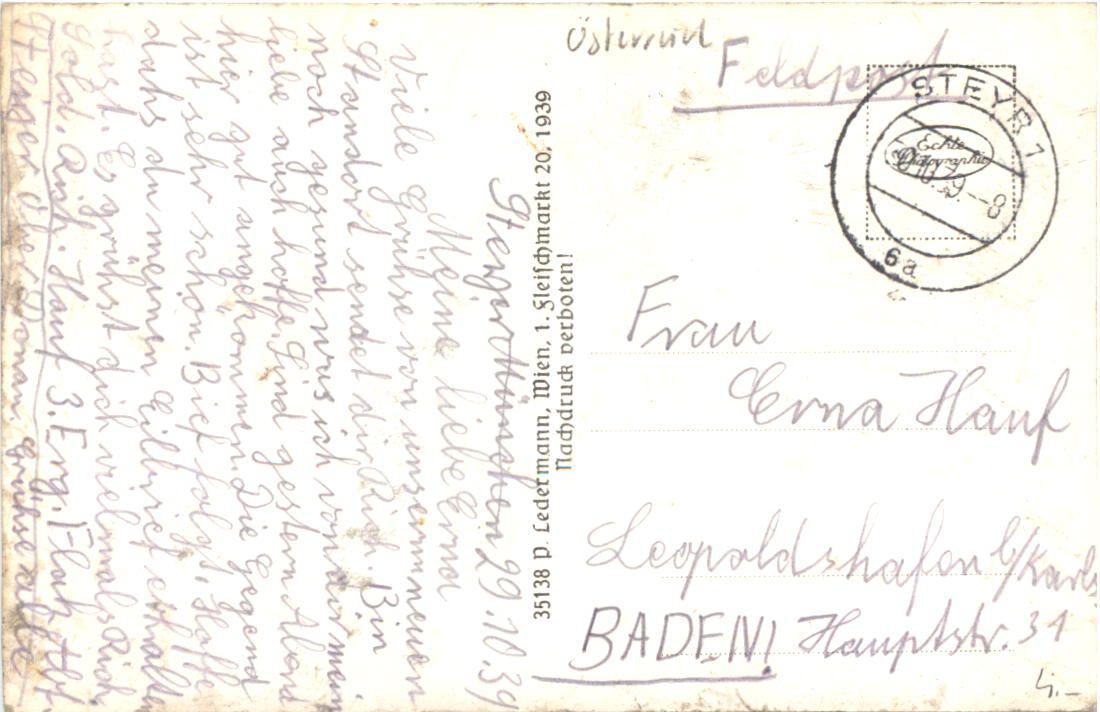 Steyr Münichen 29.10.39
Meine liebe Erna
Viele Grühse von unserm neuen
Standort sendet dir Rich. Bin
noch gesund was ich von dir mein
liebe auch hoffe. Sind gestern Abend
hier gut angekommen. Die Gegend
ist sehr schön. Brief folgt. Hoffe
dahs du meinen Eilbrief erhalten
hast. Es grühst dich vielmals Rich
Sold. Rich. Hauf 3. Erg. Flak Abt
Steyer Ober Donau. Grühse alle
35138 P. Ledermann, Wien, 1. Fleischmarkt 20. 1939
Nachdruck verboten!
Österreich
Feldpost
STEYR 1
Echte
Photographie
10.39.--8
6a
Frau
Erna Hauf
Leopoldshafen b/Karls
BADEN! Hauptstr. 31
4.-